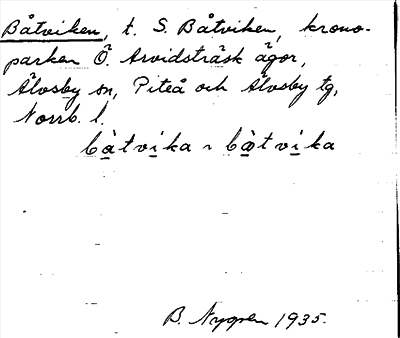 Båtviken, t. S. Båtviken, krono-
parken Ö. Arvidsträsk ägor,
Älvsby sn, Piteå och Älvsby tg,
Norrb. l.
bàtvika ~ bòtvika
B. Nygren 1935.